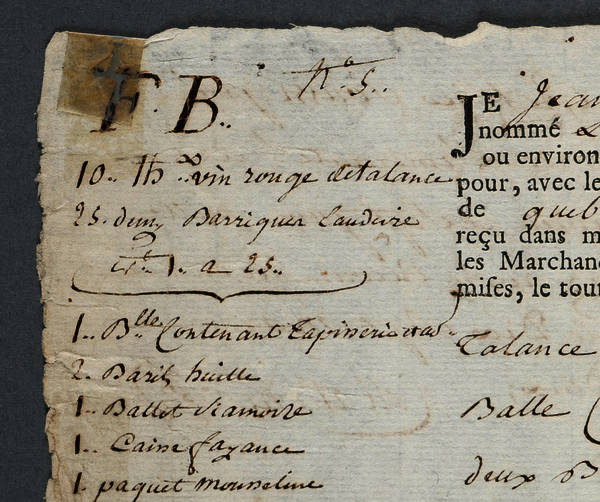 F B.. n.º 5..
10.. th.ˣ vin rouge de talance
25. demy Barriques Eaudevie
n.º 1.. a 25..
1.. B.lle Contenant Tapisserie
2. Barils huille
1.. Ballot Siamoise
1.. Caisse fayance
1. paquet Mousseline
JE Jean
nommé
ou environ
pour, avec le
de queb
reçu dans m
les Marchand
mises, le tout
Talance
Balle (
deux B